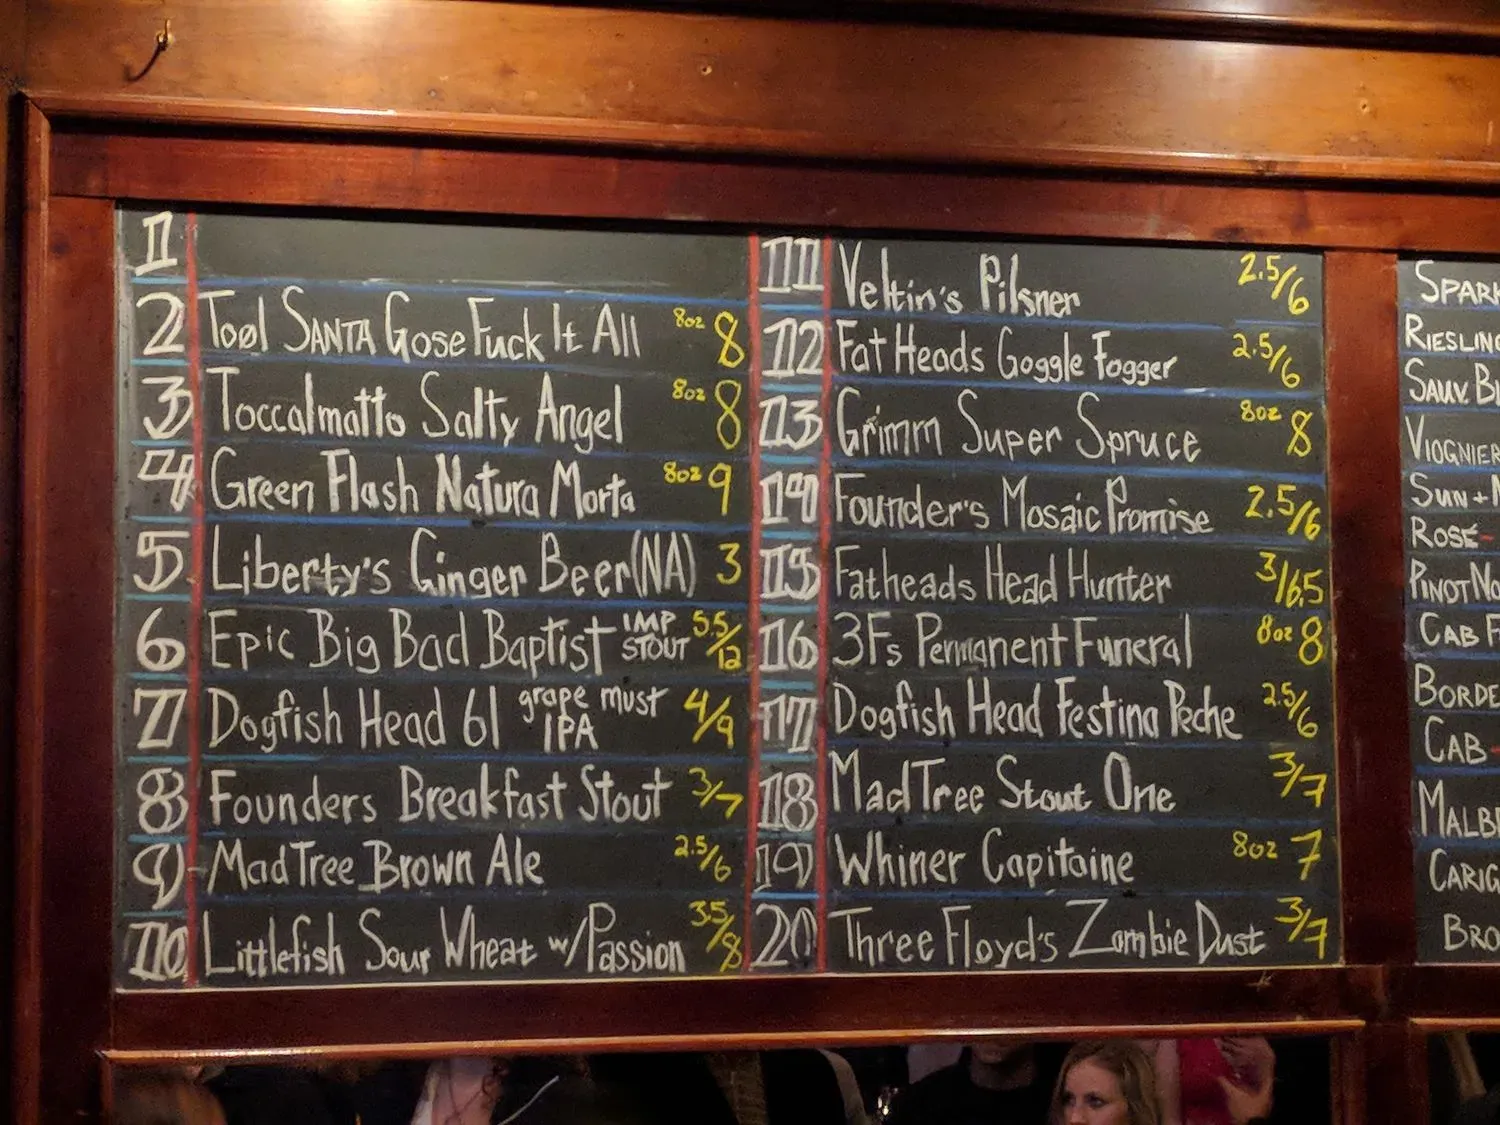 1
2 Toøl SANTA Gose Fuck It All 8oz 8
3 Toccalmatto Salty Angel 8oz 8
4 Green Flash Natura Morta 8oz 9
5 Liberty's Ginger Beer (NA) 3
6 Epic Big Bad Baptist IMP STOUT 5.5/12
7 Dogfish Head 61 grape must IPA 4/9
8 Founders Breakfast Stout 3/7
9 MadTree Brown Ale 2.5/6
10 Littlefish Sour Wheat w/Passion 3.5/8
11 Veltin's Pilsner 2.5/6
12 Fat Heads Goggle Fogger 2.5/6
13 Grimm Super Spruce 8oz 8
14 Founder's Mosaic Promise 2.5/6
15 Fatheads Head Hunter 3/6.5
16 3Fs Permanent Funeral 8oz 8
17 Dogfish Head Festina Peche 2.5/6
18 MadTree Stout One 3/7
19 Whiner Capitaine 8oz 7
20 Three Floyd's Zombie Dust 3/7
SPARK
RIESLING
SAUV. B
VIOGNIER
SUN +
ROSÉ -
PINOT NO
CAB F
BORDE
CAB -
MALB
CARIG
BRO